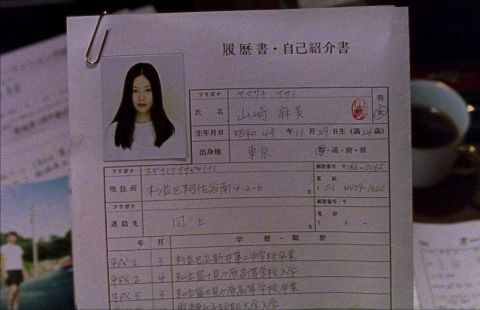 履歴書・自己紹介書
フリガナ ヤマザキ アサミ 男
氏名 山崎 麻美 女
生年月日 昭和 49 年 11 月 29 日生 (満 24 歳)
出身地 東京 都・道・府・県
フリガナ スギナミク アサガヤミナミ 郵便番号 〒166-0065
現住所 杉並区阿佐谷南4-2-6 電話 03
フリガナ 郵便番号 〒
連絡先 同上 電話
年 月 学歴・職歴
平成 2 3 杉並区立 第二中学校卒業
平成 2 4 私立富士見ヶ原高等学校入学
平成 5 3 私立富士見ヶ原高等学校卒業